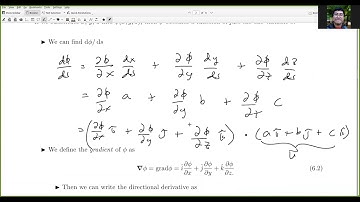 ▶ We can find dϕ/ds
dϕ/ds = ∂ϕ/∂x dx/ds + ∂ϕ/∂y dy/ds + ∂ϕ/∂z dz/ds
= ∂ϕ/∂x a + ∂ϕ/∂y b + ∂ϕ/∂z c
= (∂ϕ/∂x i + ∂ϕ/∂y j + ∂ϕ/∂z k) · (a i + b j + c k)
u
▶ We define the gradient of ϕ as
∇ϕ = gradϕ = i ∂ϕ/∂x + j ∂ϕ/∂y + k ∂ϕ/∂z. (6.2)
▶ Then we can write the directional derivative as